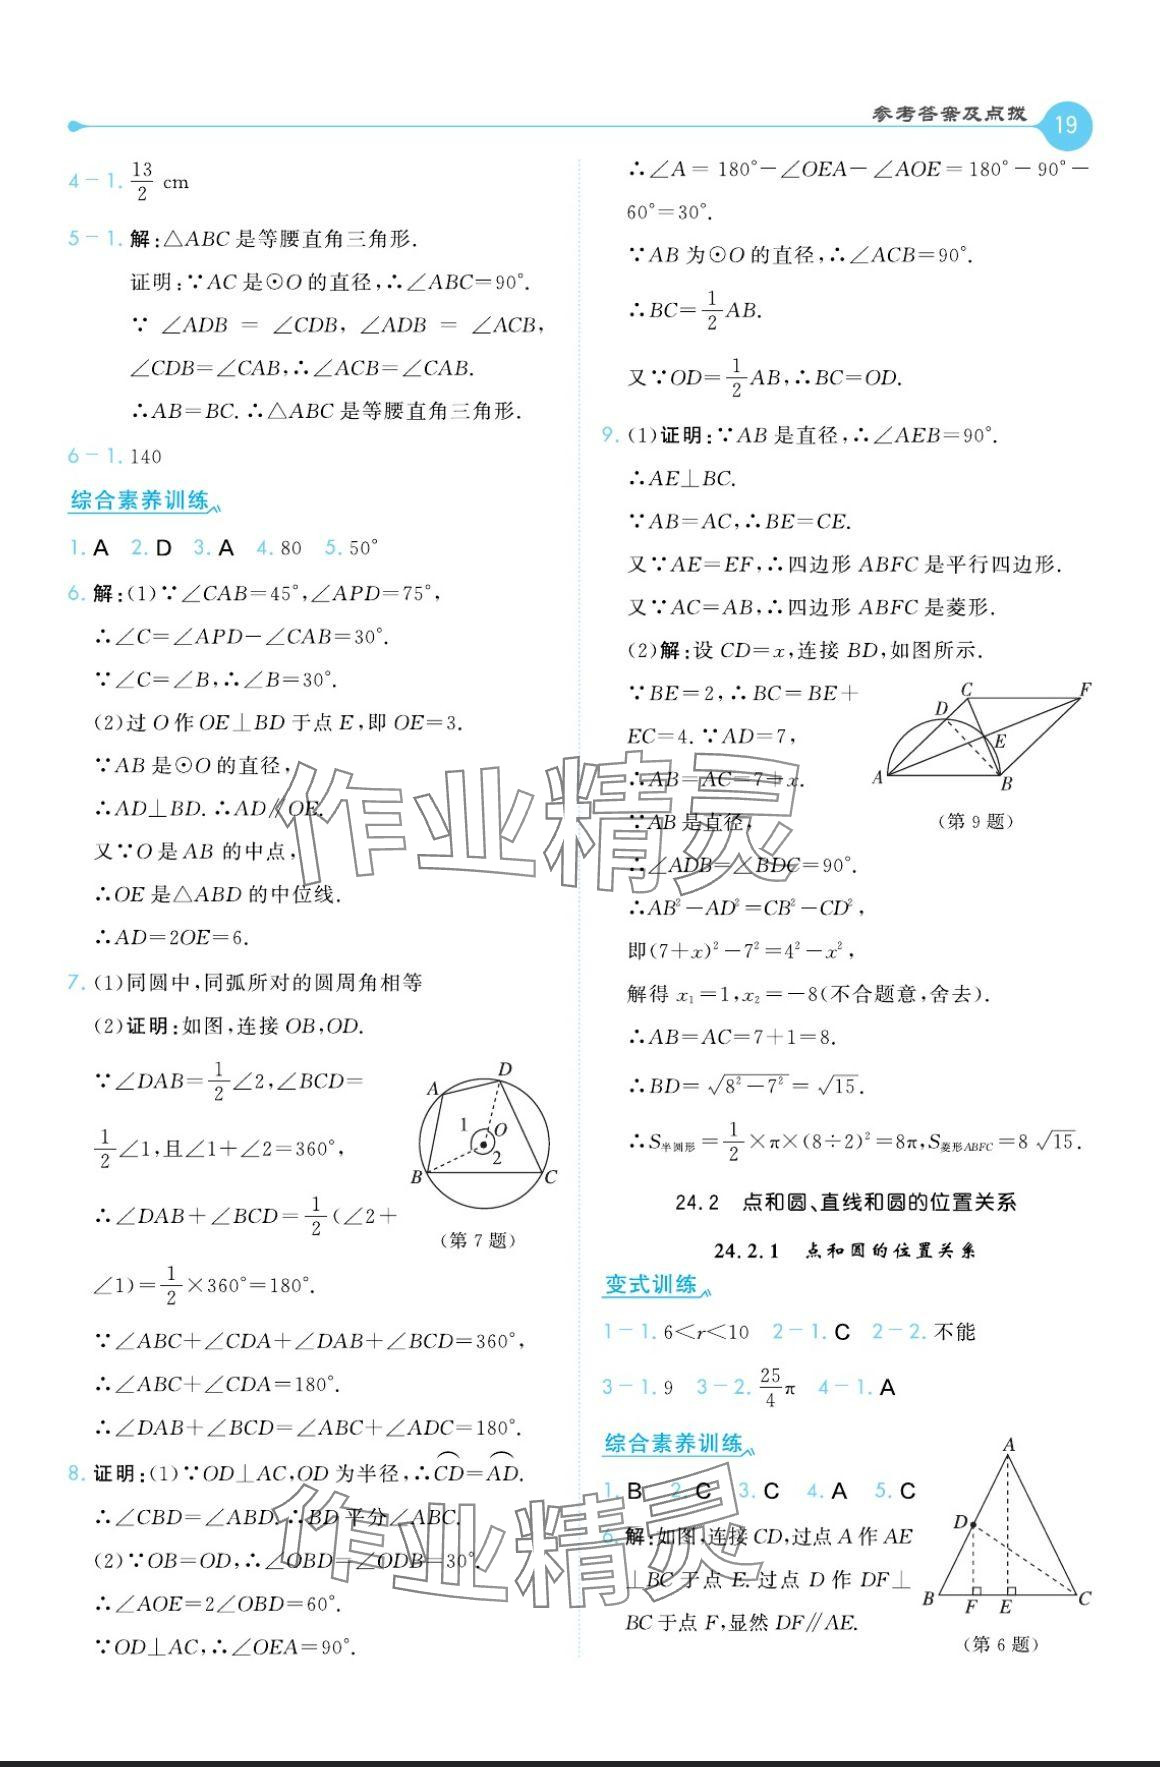 参考答案及点拨 19
4－1. 13/2 cm
5－1. 解:△ABC 是等腰直角三角形.
证明:∵AC 是⊙O 的直径,∴∠ABC=90°.
∵ ∠ADB = ∠CDB, ∠ADB = ∠ACB,
∠CDB=∠CAB,∴∠ACB=∠CAB.
∴AB=BC. ∴△ABC 是等腰直角三角形.
6－1. 140
综合素养训练
1. A 2. D 3. A 4. 80 5. 50°
6. 解:(1)∵∠CAB=45°,∠APD=75°,
∴∠C=∠APD－∠CAB=30°.
∵∠C=∠B,∴∠B=30°.
(2)过 O 作 OE⊥BD 于点 E,即 OE=3.
∵AB 是⊙O 的直径,
∴AD⊥BD. ∴AD∥OE.
又∵O 是 AB 的中点,
∴OE 是△ABD 的中位线.
∴AD=2OE=6.
7. (1)同圆中,同弧所对的圆周角相等
(2)证明:如图,连接 OB,OD.
∵∠DAB=1/2∠2,∠BCD=
1/2∠1,且∠1＋∠2=360°,
∴∠DAB＋∠BCD=1/2(∠2＋
∠1)=1/2×360°=180°.
A D 1 O 2 B C
(第 7 题)
∵∠ABC＋∠CDA＋∠DAB＋∠BCD=360°,
∴∠ABC＋∠CDA=180°.
∴∠DAB＋∠BCD=∠ABC＋∠ADC=180°.
8. 证明:(1)∵OD⊥AC,OD 为半径,∴⌒CD=⌒AD.
∴∠CBD=∠ABD.∴BD 平分∠ABC.
(2)∵OB=OD,∴∠OBD=∠ODB=30°.
∴∠AOE=2∠OBD=60°.
∵OD⊥AC,∴∠OEA=90°.
∴∠A= 180°－∠OEA－∠AOE=180°－90°－
60°=30°.
∵AB 为⊙O 的直径,∴∠ACB=90°.
∴BC=1/2AB.
又∵OD=1/2AB,∴BC=OD.
9. (1)证明:∵AB 是直径,∴∠AEB=90°.
∴AE⊥BC.
∵AB=AC,∴BE=CE.
又∵AE=EF,∴四边形 ABFC 是平行四边形.
又∵AC=AB,∴四边形 ABFC 是菱形.
(2)解:设 CD=x,连接 BD,如图所示.
∵BE=2,∴BC=BE＋
EC=4. ∵AD=7,
∴AB=AC=7＋x.
∵AB 是直径,
C F D E A B
(第 9 题)
∴∠ADB=∠BDC=90°.
∴AB²－AD²=CB²－CD²,
即(7＋x)²－7²=4²－x²,
解得 x₁=1,x₂=－8(不合题意,舍去).
∴AB=AC=7＋1=8.
∴BD=√(8²－7²)=√15.
∴S半圆形=1/2×π×(8÷2)²=8π,S菱形ABFC=8√15.
24.2 点和圆、直线和圆的位置关系
24.2.1 点和圆的位置关系
变式训练
1－1. 6＜r＜10 2－1. C 2－2. 不能
3－1. 9 3－2. 25/4π 4－1. A
综合素养训练
1. B 2. C 3. C 4. A 5. C
6. 解:如图,连接 CD,过点 A 作 AE
⊥BC 于点 E. 过点 D 作 DF⊥
BC 于点 F,显然 DF∥AE.
A D B F E C
(第 6 题)
作业精灵
作业精灵